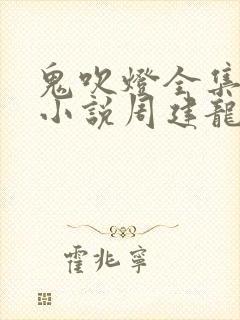 鬼吹燈全集
小說周建龍
霍兆寧